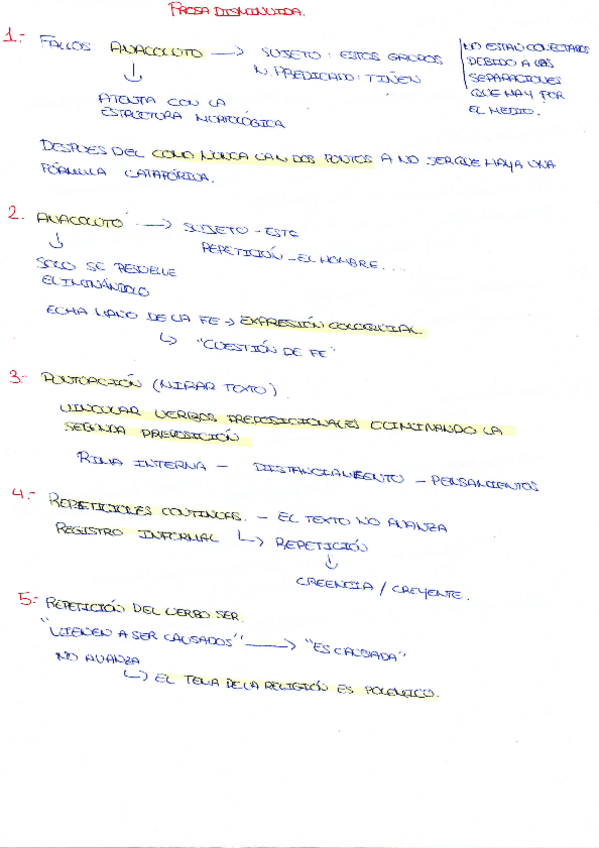 PROSA DISMINUIDA.
1.- FALLOS: ANACOLUTO → SUJETO: ESTOS GRUPOS
N. PREDICADO: TIÑEN
NO ESTÁN CONECTADOS
DEBIDO A LAS
SEPARACIONES
QUE HAY POR
EL MEDIO.
↓
ATENTA CON LA
ESTRUCTURA MORFOLÓGICA
DESPUES DEL COMO NUNCA VAN DOS PUNTOS A NO SER QUE HAYA UNA
FÓRMULA CATAFÓRICA.
2. ANACOLUTO → SUJETO - ESTE
REPETICIÓN - EL HOMBRE...
↓
SOLO SE RESUELVE
ELIMINÁNDOLO
ECHA MANO DE LA FE → EXPRESIÓN COLOQUIAL
↳ "CUESTIÓN DE FE"
3.- PUNTUACIÓN (MIRAR TEXTO).
VINCULAR VERBOS PREPOSICIONALES ELIMINANDO LA
SEGUNDA PREPOSICIÓN
RIMA INTERNA - DISTANCIAMIENTO - PENSAMIENTOS
4.- REPETICIONES CONTINUAS. - EL TEXTO NO AVANZA
REGISTRO INFORMAL ↳ REPETICIÓN
↓
CREENCIA / CREYENTE.
5.- REPETICIÓN DEL VERBO SER.
"VIENEN A SER CAUSADOS" → "ES CAUSADA"
NO AVANZA
↳ EL TEMA DE LA RELIGIÓN ES POLEMICO.